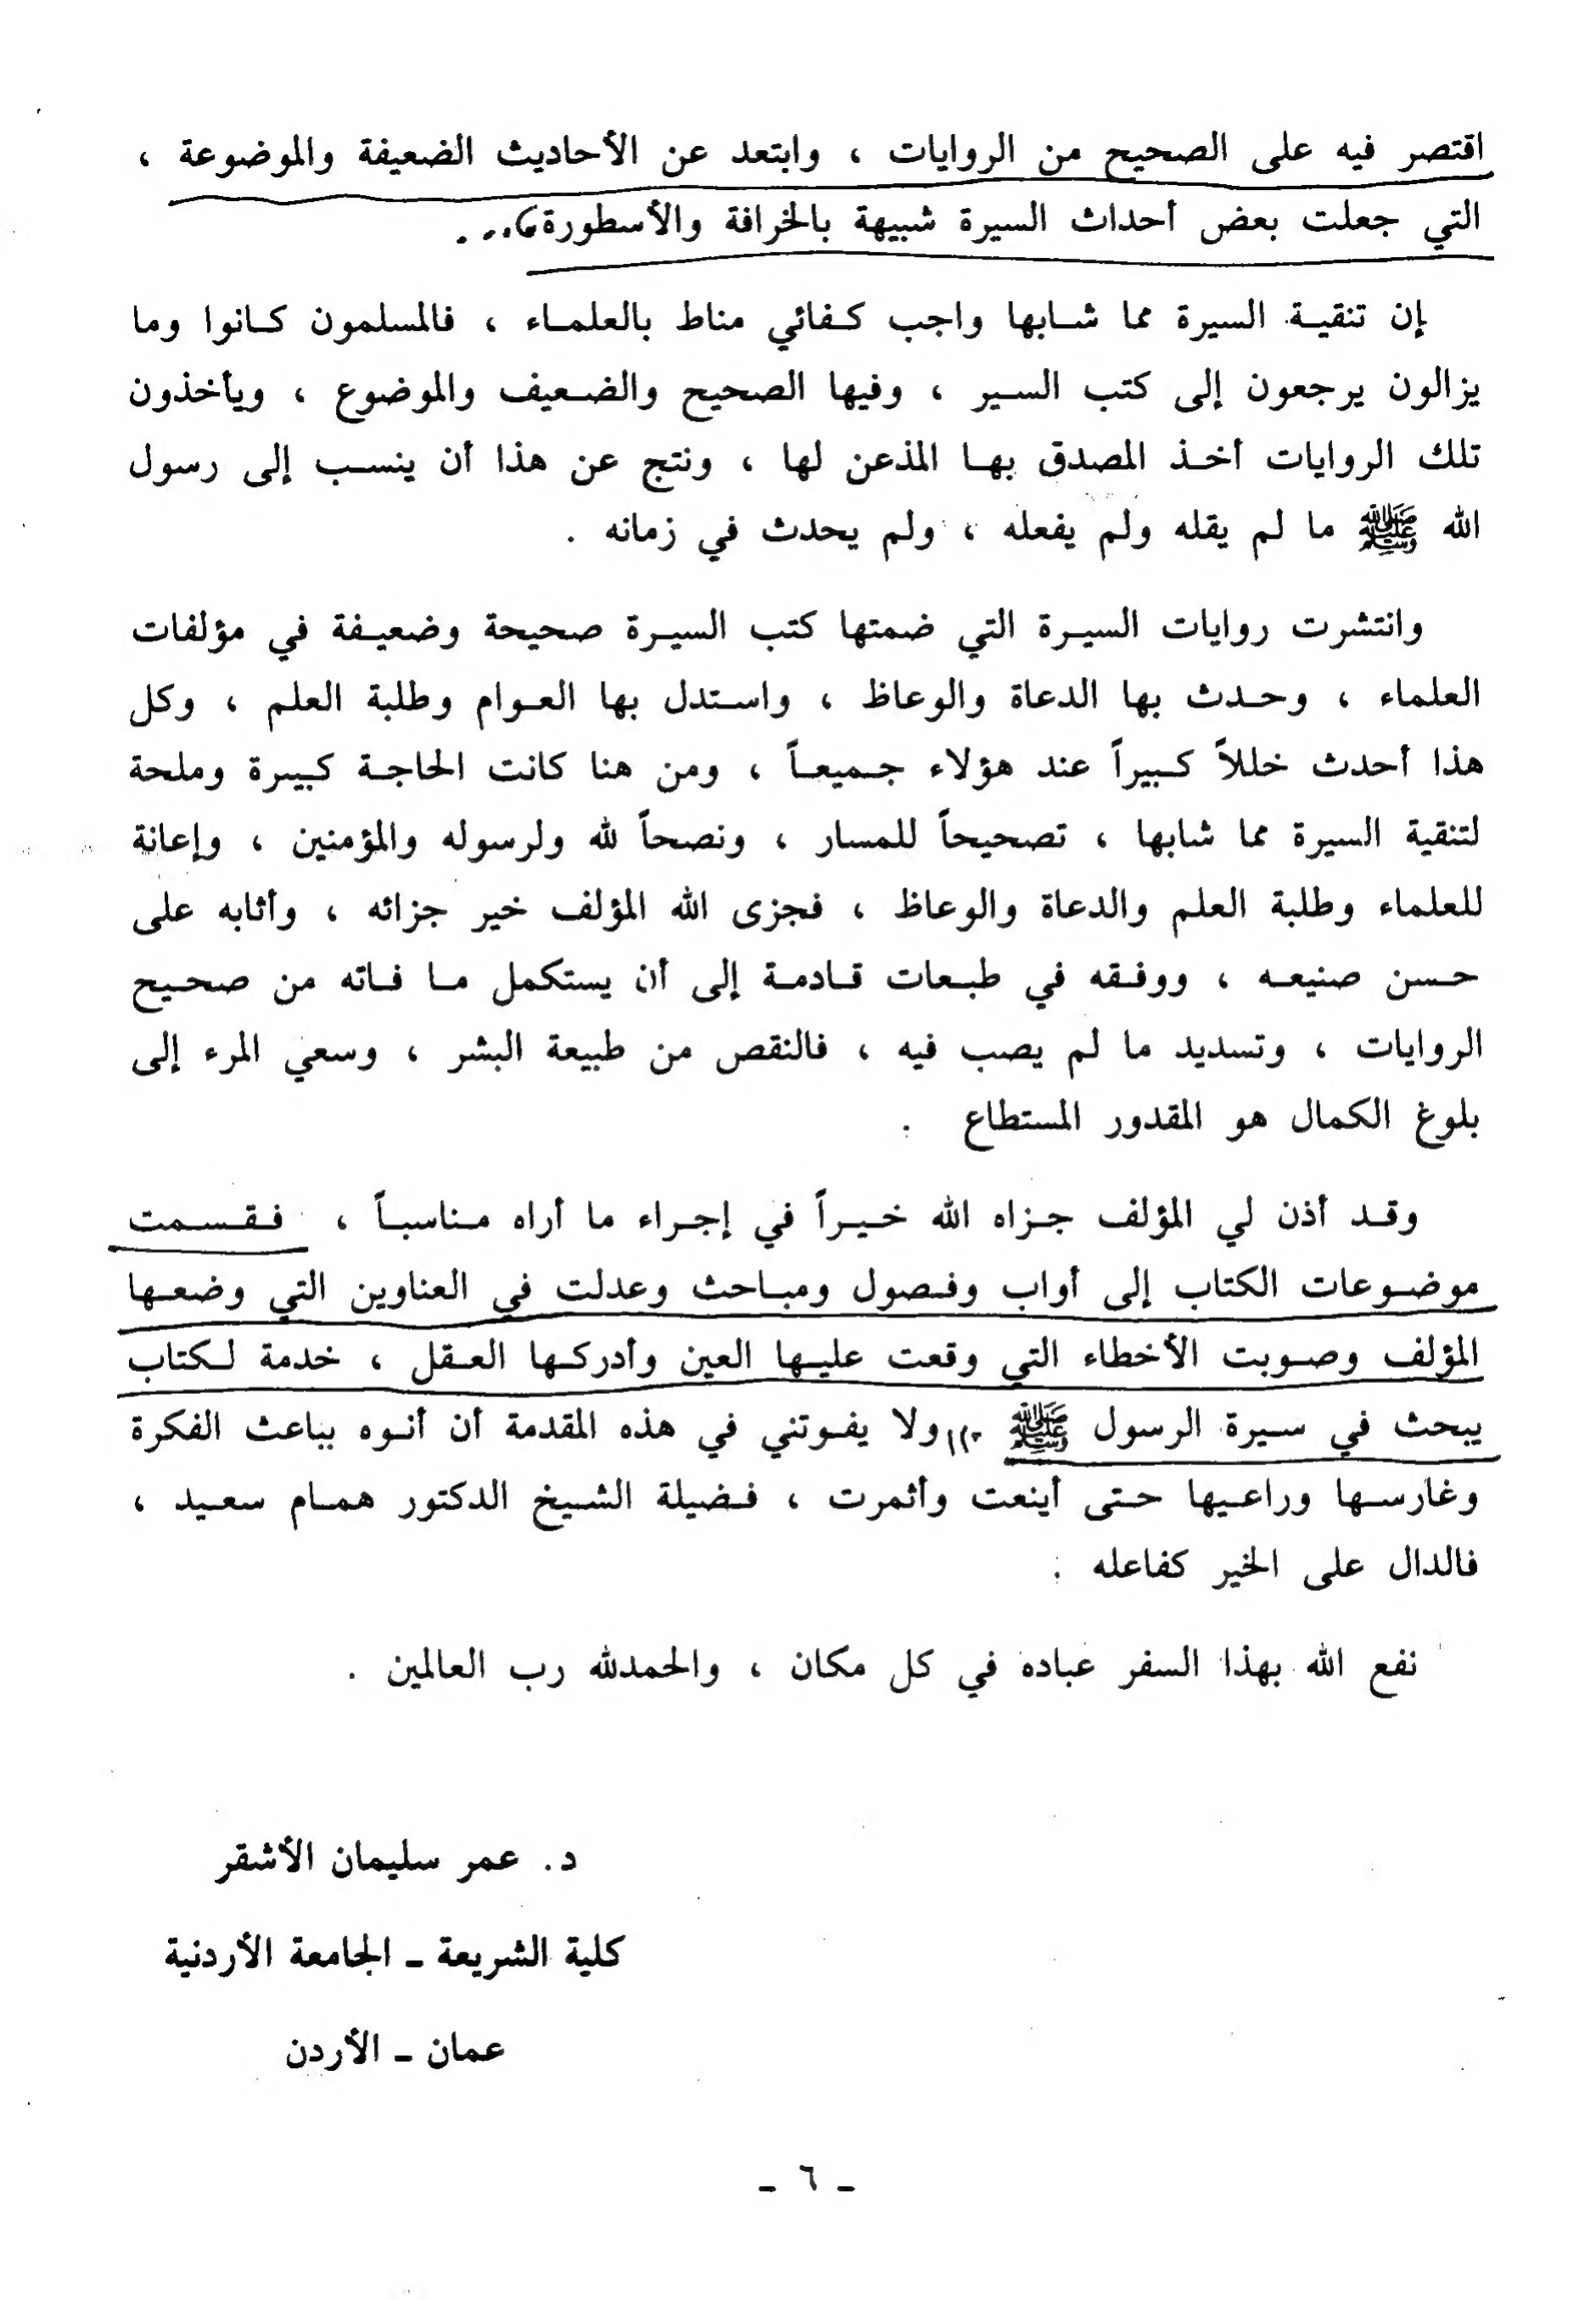 اقتصر فيه على الصحيح من الروايات ، وابتعد عن الأحاديث الضعيفة والموضوعة ،
التي جعلت بعض أحداث السيرة شبيهة بالخرافة والأسطورة ...
إن تنقية السيرة مما شابها واجب كفائي مناط بالعلماء ، فالمسلمون كانوا وما
يزالون يرجعون إلى كتب السير ، وفيها الصحيح والضعيف والموضوع ، ويأخذون
تلك الروايات أخذ المصدق بها المذعن لها ، ونتج عن هذا أن ينسب إلى رسول
الله ﷺ ما لم يقله ولم يفعله ، ولم يحدث في زمانه .
وانتشرت روايات السيرة التي ضمتها كتب السيرة صحيحة وضعيفة في مؤلفات
العلماء ، وحدث بها الدعاة والوعاظ ، واستدل بها العوام وطلبة العلم ، وكل
هذا أحدث خللاً كبيراً عند هؤلاء جميعاً ، ومن هنا كانت الحاجة كبيرة وملحة
لتنقية السيرة مما شابها ، تصحيحاً للمسار ، ونصحاً لله ولرسوله والمؤمنين ، وإعانة
للعلماء وطلبة العلم والدعاة والوعاظ ، فجزى الله المؤلف خير جزائه ، وأثابه على
حسن صنيعه ، ووفقه في طبعات قادمة إلى أن يستكمل ما فاته من صحيح
الروايات ، وتسديد ما لم يصب فيه ، فالنقص من طبيعة البشر ، وسعي المرء إلى
بلوغ الكمال هو المقدور المستطاع .
وقد أذن لي المؤلف جزاه الله خيراً في إجراء ما أراه مناسباً ، فقسمت
موضوعات الكتاب إلى أواب وفصول ومباحث وعدلت في العناوين التي وضعها
المؤلف وصوبت الأخطاء التي وقعت عليها العين وأدركها العقل ، خدمة لكتاب
يبحث في سيرة الرسول ﷺ ولا يفوتني في هذه المقدمة أن أنوه بباعث الفكرة
وغارسها وراعيها حتى أينعت وأثمرت ، فضيلة الشيخ الدكتور همام سعيد ،
فالدال على الخير كفاعله .
نفع الله بهذا السفر عباده في كل مكان ، والحمدلله رب العالمين .
د. عمر سليمان الأشقر
كلية الشريعة ـ الجامعة الأردنية
عمان ـ الأردن
ـ ٦ ـ